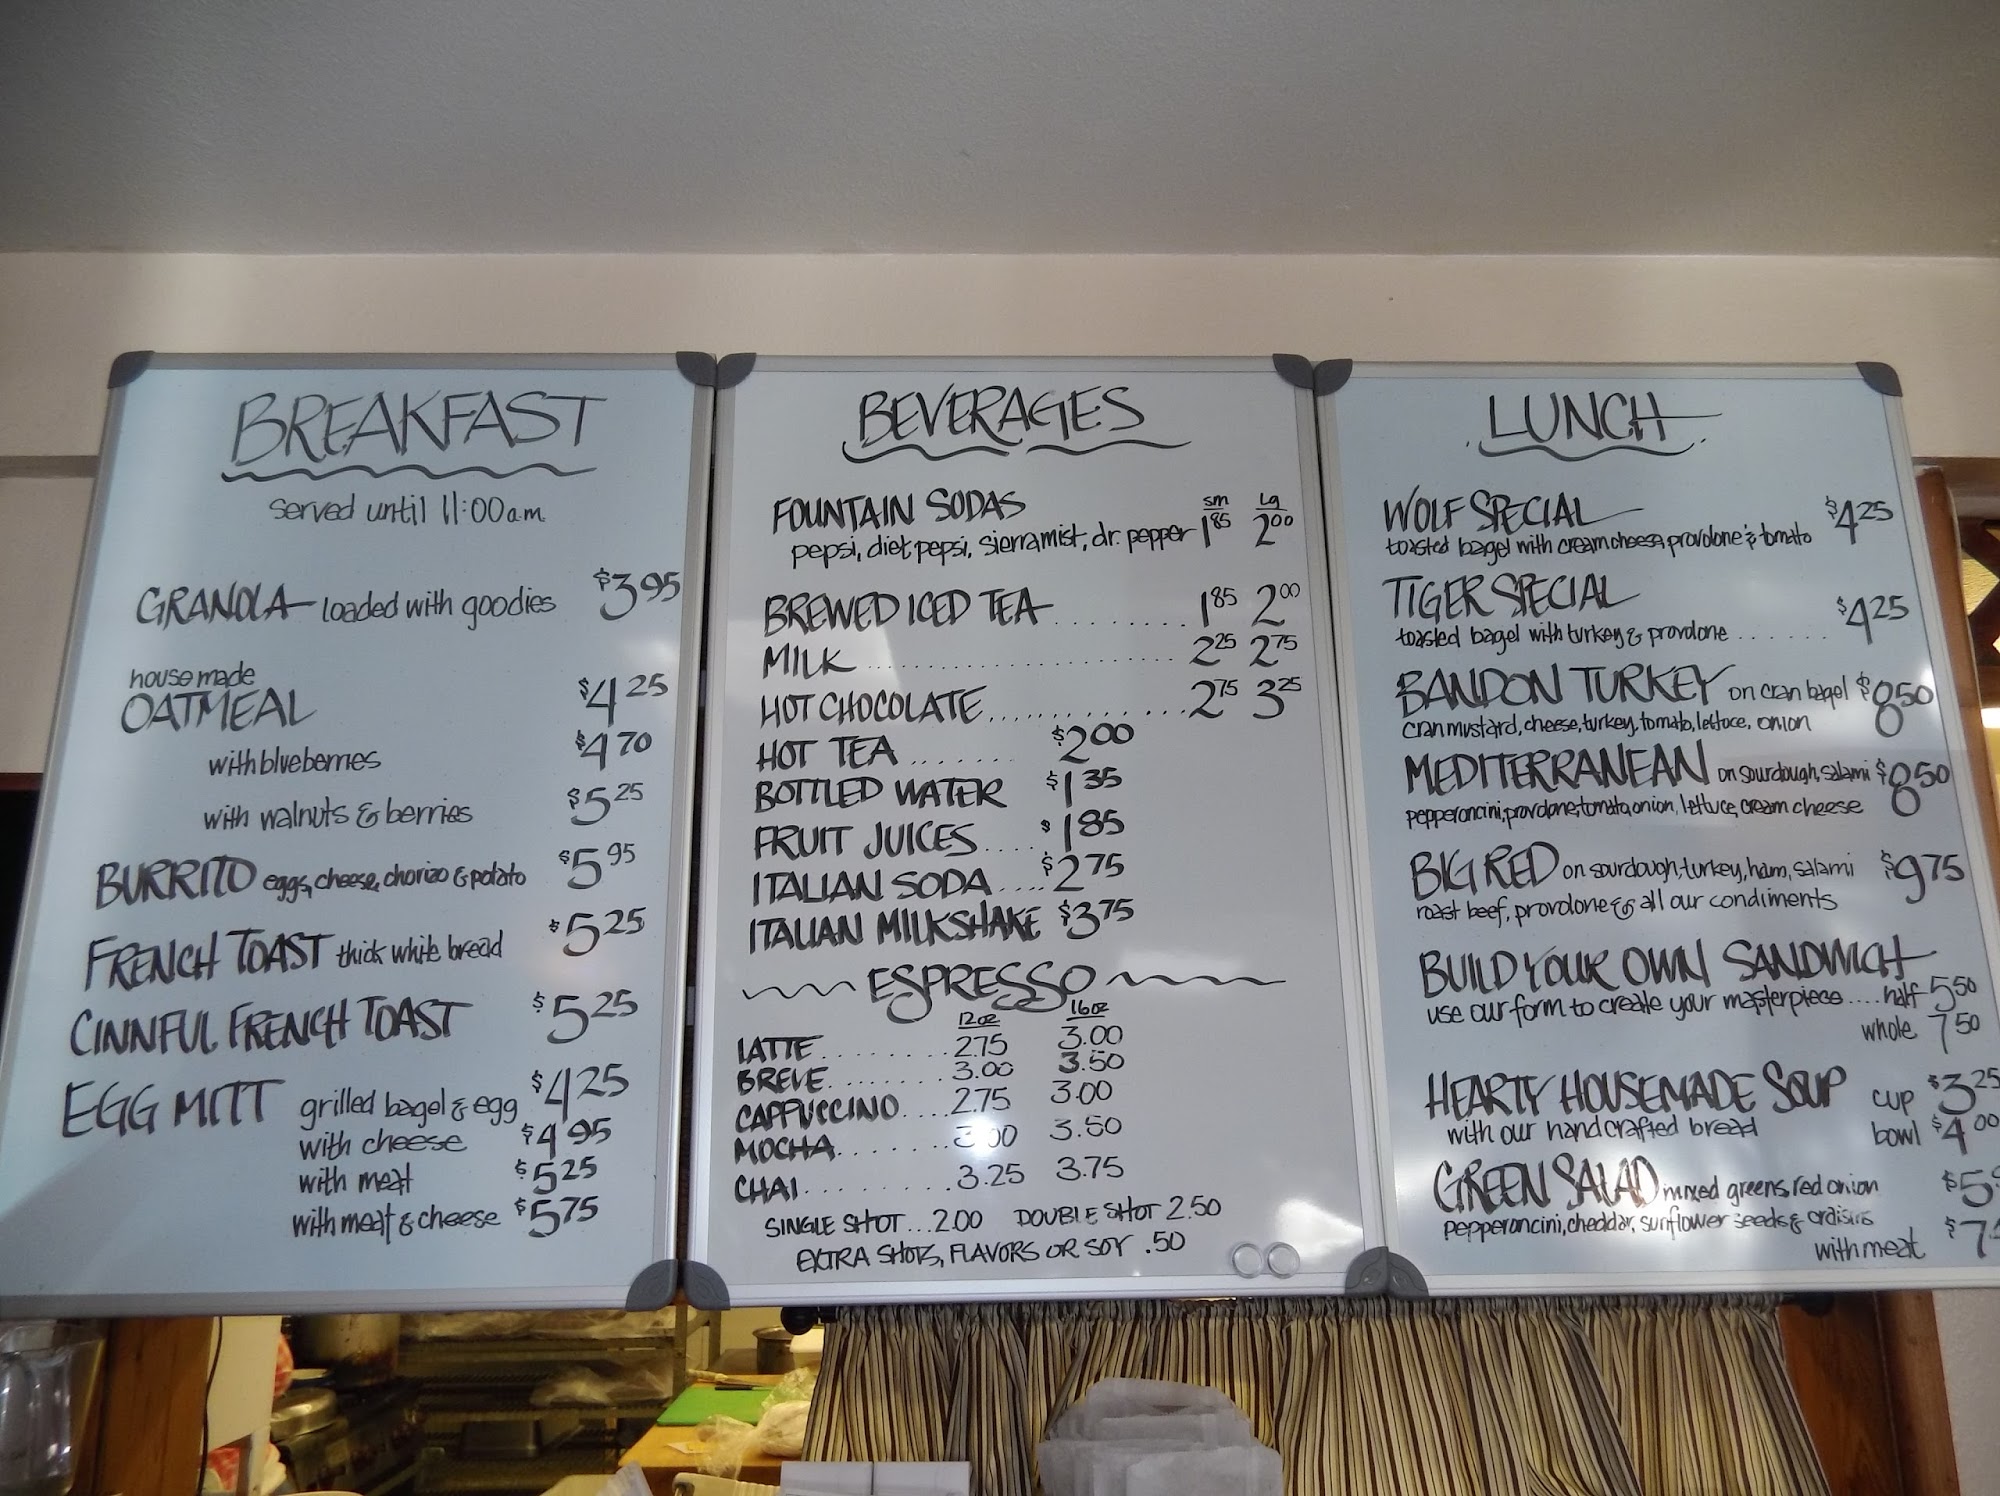 BREAKFAST
served until 11:00am
GRANOLA loaded with goodies $3.95
housemade
OATMEAL $4.25
with blueberries $4.70
with walnuts & berries $5.25
BURRITO eggs, cheese, chorizo & potato $5.95
FRENCH TOAST thick white bread $5.25
CINNFUL FRENCH TOAST $5.25
EGG MITT grilled bagel & egg $4.25
with cheese $4.95
with meat $5.25
with meat & cheese $5.75
BEVERAGES
FOUNTAIN SODAS sm Lg
pepsi, diet pepsi, sierra mist, dr. pepper 1.85 2.00
BREWED ICED TEA........ 1.85 2.00
MILK........................ 2.25 2.75
HOT CHOCOLATE............ 2.75 3.25
HOT TEA....... $2.00
BOTTLED WATER $1.35
FRUIT JUICES.... $1.85
ITALIAN SODA.... $2.75
ITALIAN MILKSHAKE $3.75
ESPRESSO
12oz 16oz
LATTE........ 2.75 3.00
BREVE........ 3.00 3.50
CAPPUCCINO.... 2.75 3.00
MOCHA........ 3.00 3.50
CHAI.......... 3.25 3.75
SINGLE SHOT...2.00 DOUBLE SHOT 2.50
EXTRA SHOTS, FLAVORS OR SOY .50
LUNCH
WOLF SPECIAL $4.25
toasted bagel with cream cheese, provolone & tomato
TIGER SPECIAL $4.25
toasted bagel with turkey & provolone......
BANDON TURKEY on cran bagel $8.50
cran mustard, cheese, turkey, tomato, lettuce, onion
MEDITERRANEAN on sourdough, salami $8.50
pepperoncini, provolone, tomato, onion, lettuce, cream cheese
BIG RED on sourdough, turkey, ham, salami $9.75
roast beef, provolone & all our condiments
BUILD YOUR OWN SANDWICH
use our form to create your masterpiece....half 5.50
whole 7.50
HEARTY HOUSEMADE SOUP cup $3.25
with our handcrafted bread bowl $4.00
GREEN SALAD mixed greens, red onion $5
pepperoncini, cheddar, sunflower seeds & craisins
with meat $7